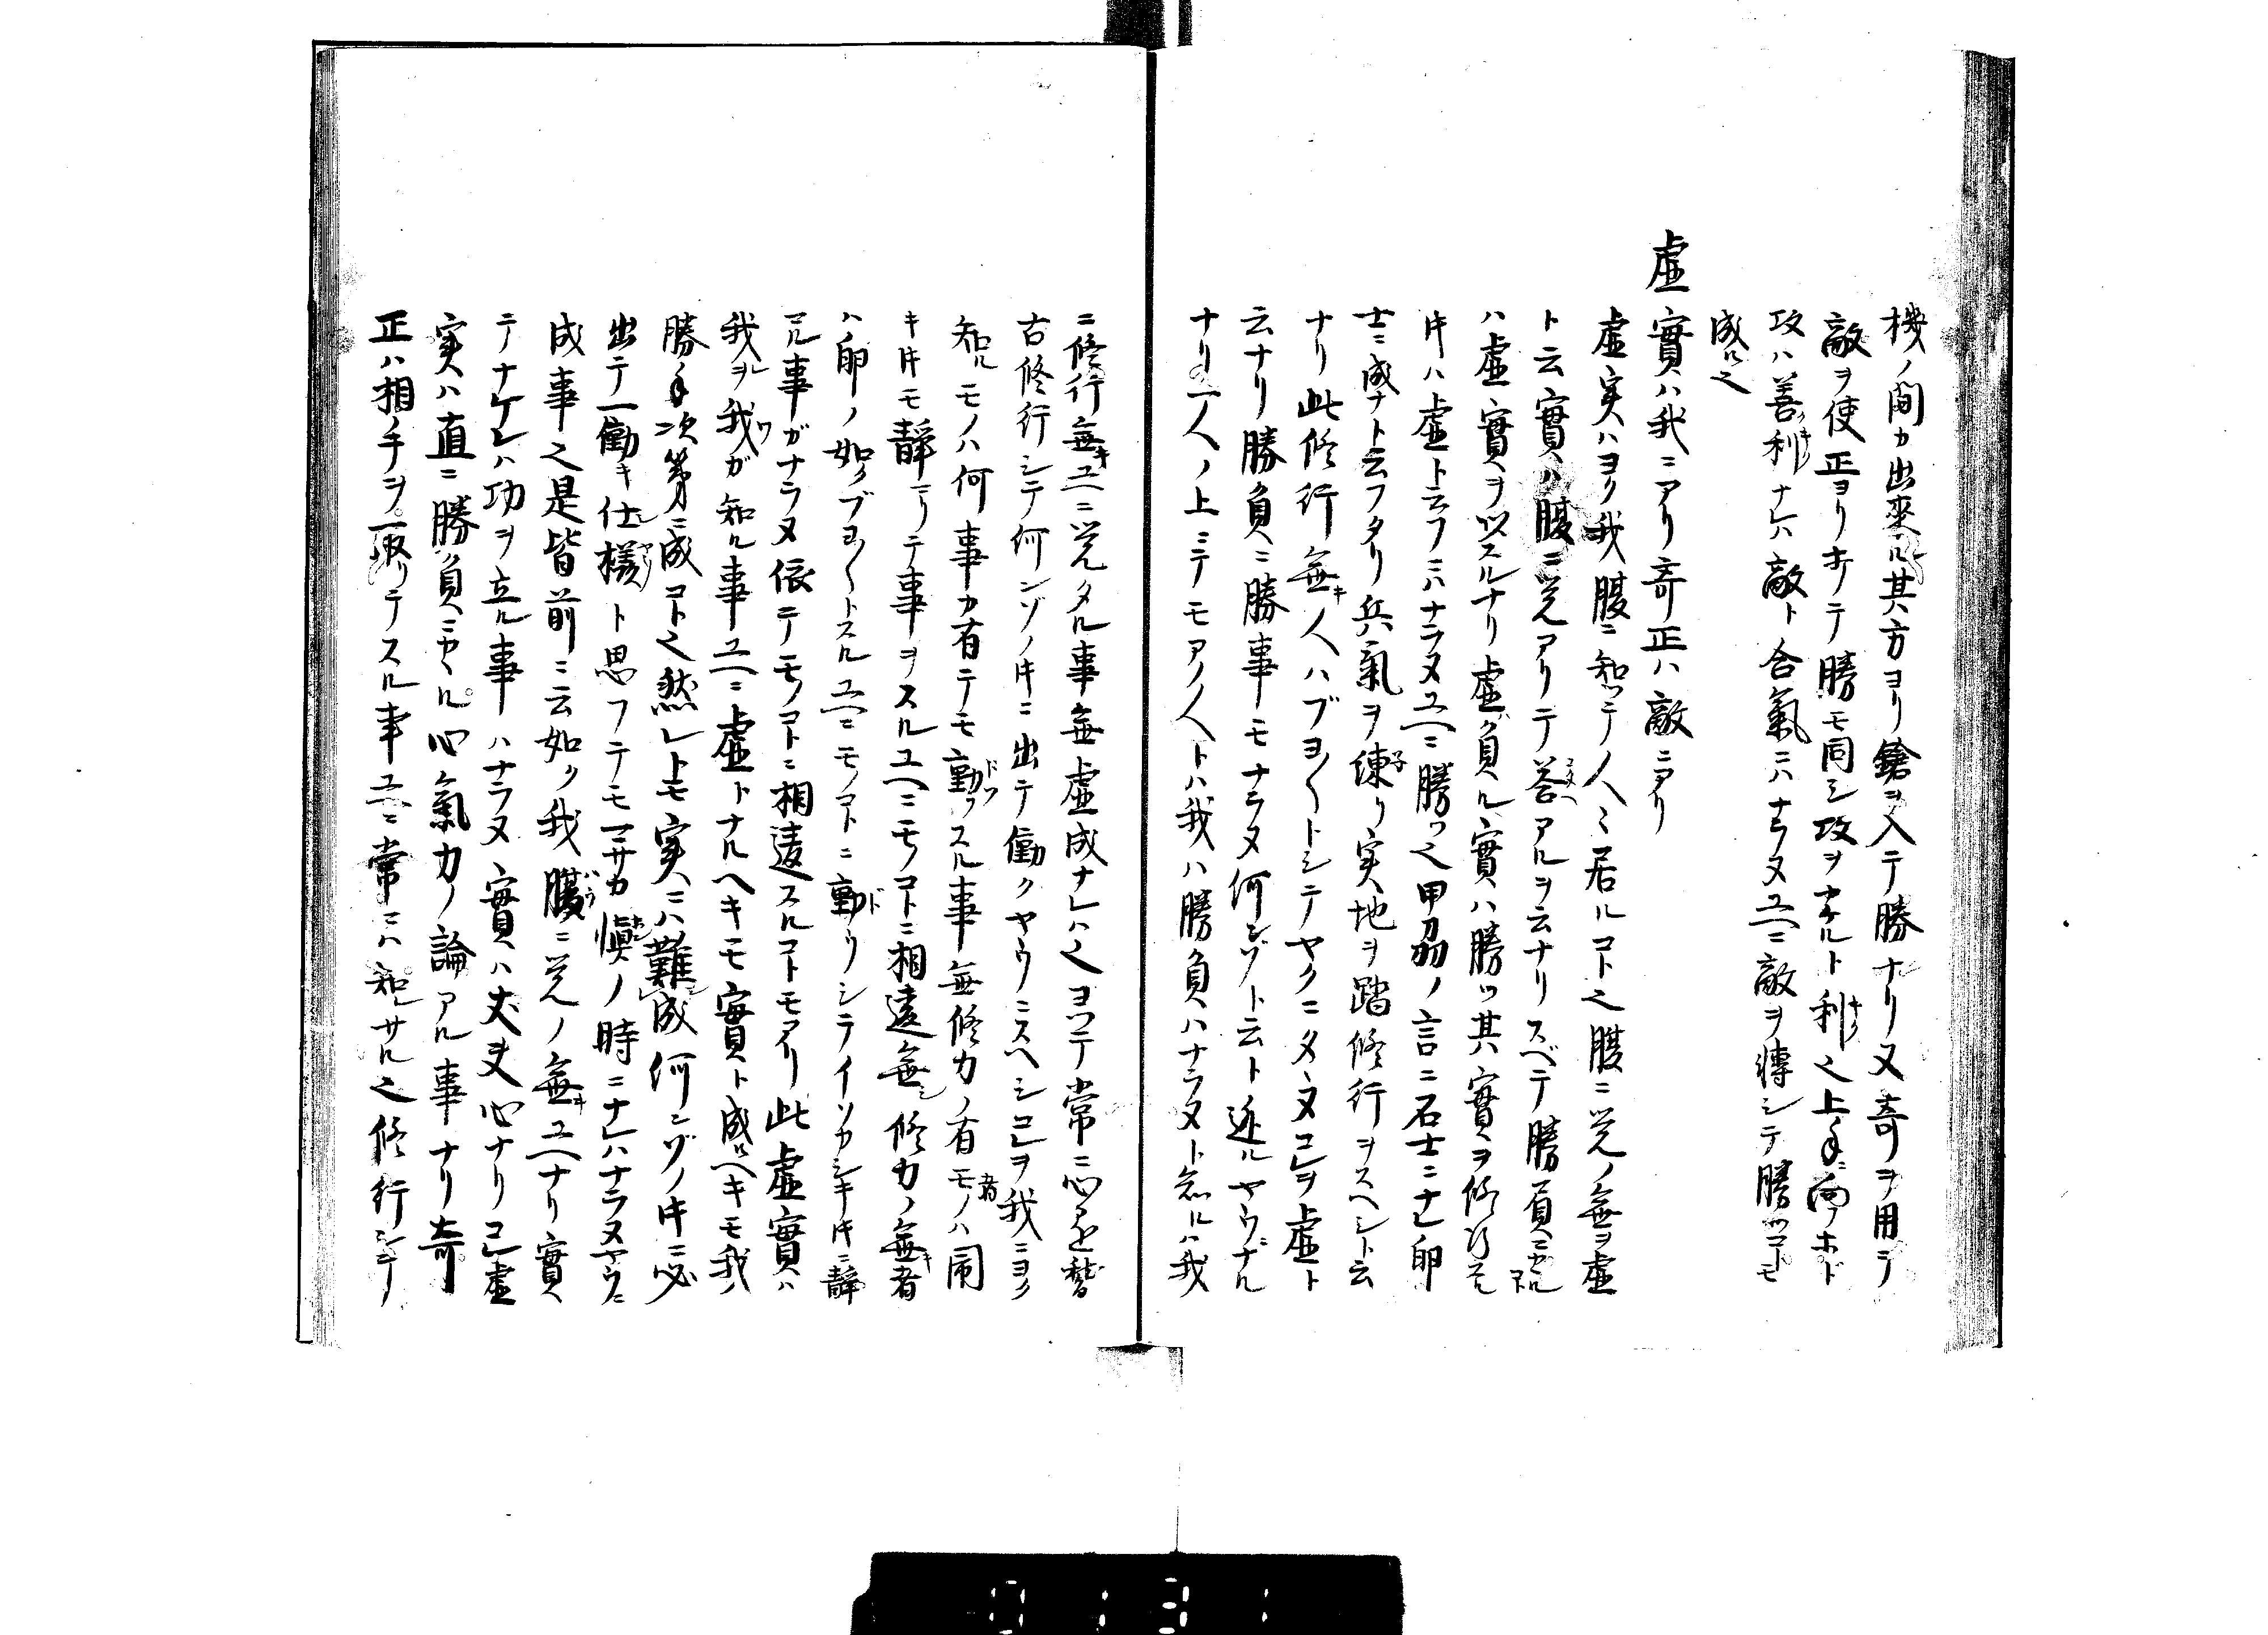 機ノ間カ出來ル其方ヨリ鎗ヲ入テ勝ナリ又奇ヲ用テ
敵ヲ使正ヨリ打テ勝モ同シ攻ヲナケルト利之上手ニ向ノホド
攻ハ善利ナレハ敵ト合氣ニハナラヌユヘニ敵ヲ轉シテ勝ツコトモ
成ル之
虚實ハ我ニアリ奇正ハ敵ニアリ
虚実ハヨク我腹ニ知ツテ人ニ居ルコト之腹ニ覚ノ無ヲ虚
ト云實ハ腹ニ覚アリテ荅アルヲ云ナリスベテ勝負ニヤルコト
ハ虚實ヲ以スルナリ虚ハ負ル實ハ勝ツ其實ヲ修行
片ハ虚ト云フニハナラヌユヘニ勝ツ之甲刕ノ言ニ石士ニナレ卵
士ニ成ナト云フタリ兵氣ヲ練リ実地ヲ踏修行ヲスヘシト云
ナリ此修行無キ人ハブヨ〱トシテヤクニタヽヌコレヲ虚ト
云ナリ勝負ニ勝事モナラヌ何ンゾト云ト逃ルヤウナル
ナリ一人ノ上ニテモアノ人トハ我ハ勝負ハナラヌト知ルハ我
ニ修行無キユヘニ覚タル事無虚成ナレハ之ヨツテ常ニ心を稽
古修行シテ何ンゾノ片ニ出テ働クヤウニスヘシコレヲ我ニヨク
知ルモノハ何事カ有テモ動ツスル事無修力ノ有モノ者ハ閙
キ片モ静ニリテ事ヲスルユヘニモノコトニ相違無シ修力ノ無キ者
ハ卵ノ如クブヨ〱トスルユヘニモノコトニ動リシテイソカシキ片ニ静
マル事ガナラヌ依テモノコトニ相違スルコトモアリ此虚實ハ
我ヲ我ガ知ル事ユヘニ虚トナルヘキモ實ト成ルヘキモ我
勝手次第ニ成コト之然レトモ実ニハ難成何ンゾノ片ニ必
出テ一働キ仕様ト思フテモマサカ慎ノ時ニナレハナラヌヤウニ
成事之是皆前ニ云如ク我腹ニ覚ノ無キユヘナリ實
テナケレハ功ヲ立ル事ハナラヌ實ハ丈夫心ナリコレ虚
実ハ直ニ勝負ニヤル心氣力ノ論アル事ナリ奇
正ハ相手ヲ取リテスル事ユヘニ常ニハ知レサル之修行シテ